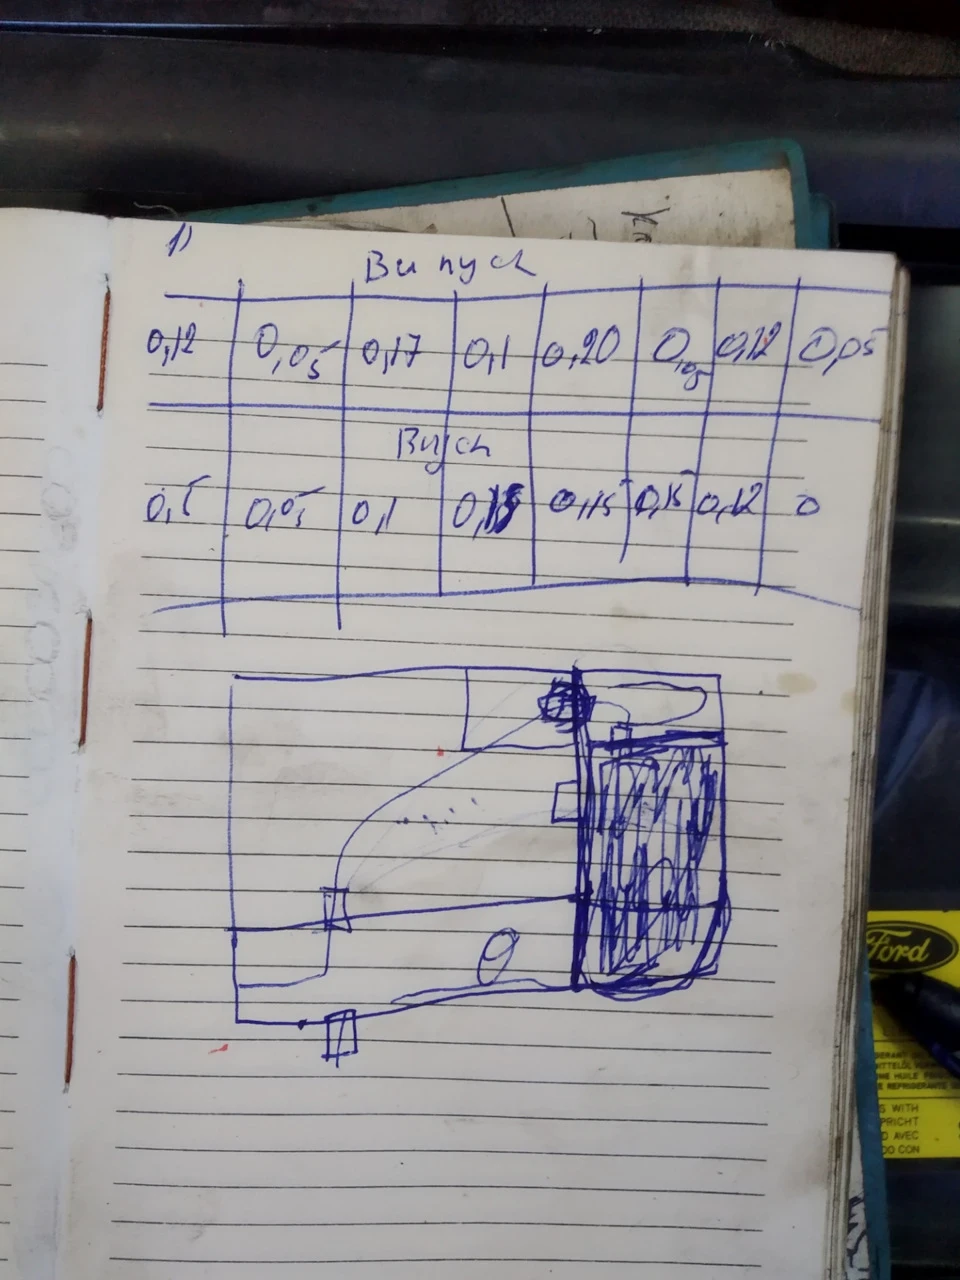 1)
Випуск
0,12 0,05 0,17 0,1 0,20 0,05 0,12 0,05
Вуск
0,5 0,05 0,1 0,15 0,15 0,15 0,12 0
Ford
S WITH
PRICHT
D AVEC
DO CON